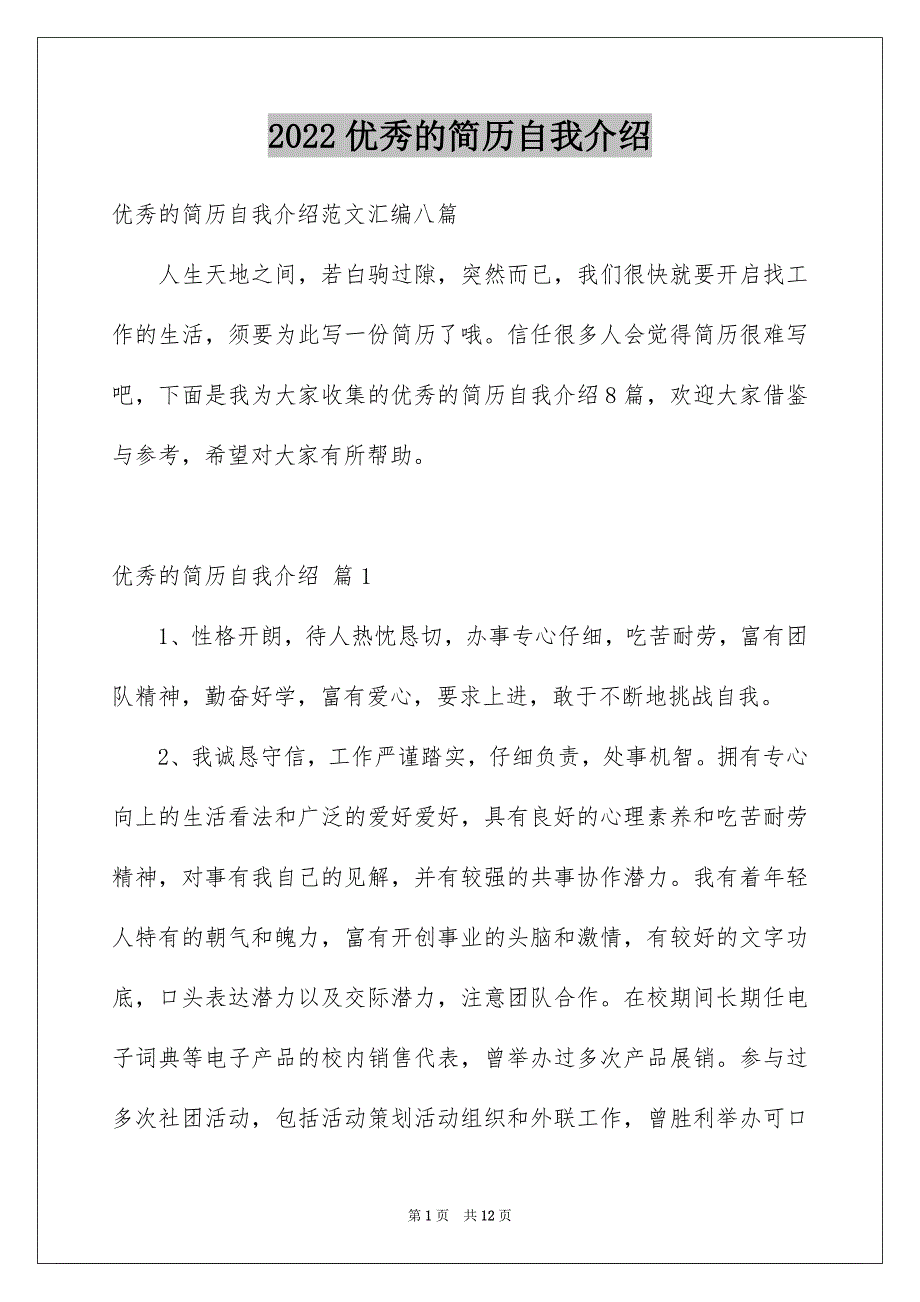 2022优秀的简历自我介绍
优秀的简历自我介绍范文汇编八篇
人生天地之间，若白驹过隙，突然而已，我们很快就要开启找工
作的生活，须要为此写一份简历了哦。信任很多人会觉得简历很难写
吧，下面是我为大家收集的优秀的简历自我介绍8篇，欢迎大家借鉴
与参考，希望对大家有所帮助。
优秀的简历自我介绍 篇1
1、性格开朗，待人热忱恳切，办事专心仔细，吃苦耐劳，富有团
队精神，勤奋好学，富有爱心，要求上进，敢于不断地挑战自我。
2、我诚恳守信，工作严谨踏实，仔细负责，处事机智。拥有专心
向上的生活看法和广泛的爱好爱好，具有良好的心理素养和吃苦耐劳
精神，对事有我自己的见解，并有较强的共事协作潜力。我有着年轻
人特有的朝气和魄力，富有开创事业的头脑和激情，有较好的文字功
底，口头表达潜力以及交际潜力，注意团队合作。在校期间长期任电
子词典等电子产品的校内销售代表，曾举办过多次产品展销。参与过
多次社团活动，包括活动策划活动组织和外联工作，曾胜利举办可口
第1页 共12页